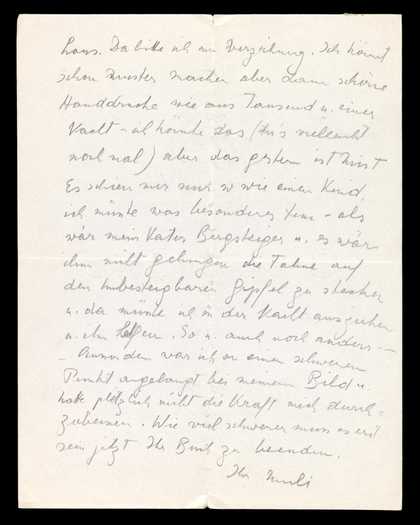 Haus. Da bitte ich um Verzeihung. Ich könnt
schon Muster machen aber dann schöne
Handdrucke wie aus Tausend u. einer
Nacht – ich könnte das (tu's vielleicht
noch mal) aber das gestern ist Mist
Es schien mir auch so wie einem Kind,
ich müsste was besonderes tun – als
wär mein Vater Bergsteiger u. es wär
ihm nicht gelungen die Fahne auf
den unbesteigbaren Gipfel zu stecken
u. da müsste ich in der Nacht ausziehen
u. ihm helfen. So u. auch noch anders –
– Ausserdem war ich an einem schweren
Punkt angelangt bei meinem Bild u.
hatte plötzlich nicht die Kraft mich durch-
zubeissen. Wie viel schwerer muss es erst
sein jetzt Ihr Buch zu beenden.
Ihr